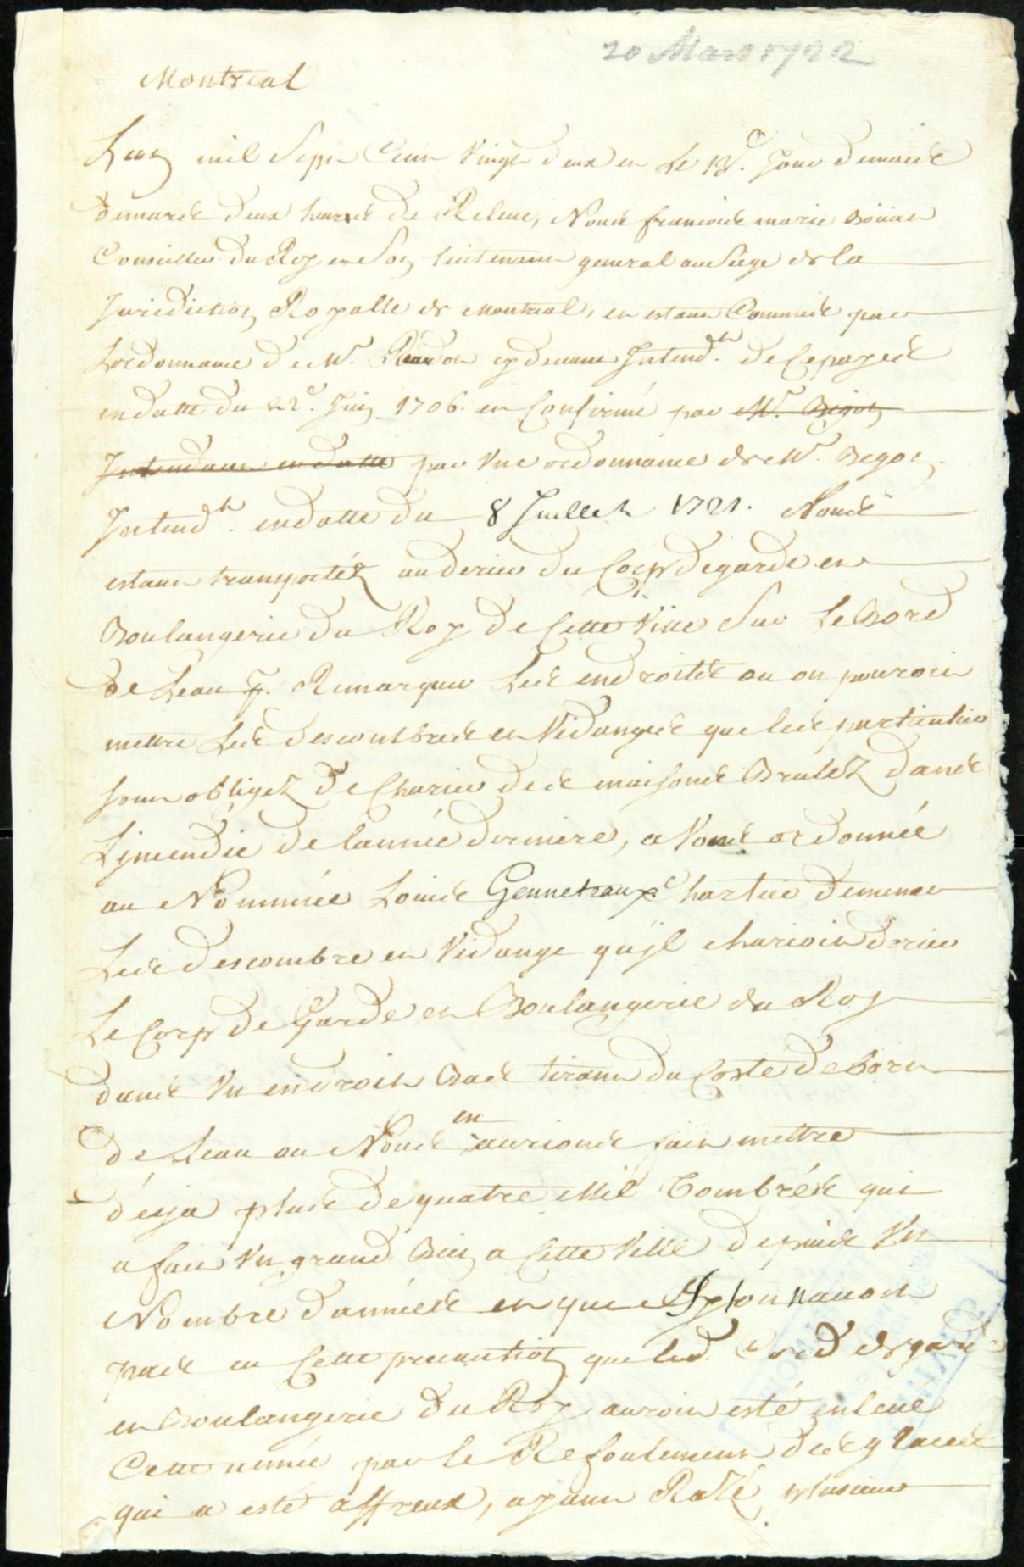 20 Mars 1722
Montreal
L'an mil Sept Cent Vingt deux et Le 18e. Jour du mois
de mars deux heures de Relevée, Nous francois marie Boüat
Conseiller du Roy et Son lieutenant general au Siege de la
Jurediction Royalle de Montreal, en estant Commis par
Lordonnance de Mr. Raudot cy devant Intendt. de Ce payes
en datte du 22e. Juin 1706. et Confirmé par Mr. Begon
Intendant en datte par Une ordonnance de Mr. Begon
Intendt. en datte du 8 Juillet 1721. Nous
estant transportéz au derier du Corps de garde et
Boulangerie du Roy de Cette Ville Sur Le Bord
de Leau pr. Remarquer Les endroits ou on pouroit
mettre Les descombres et Vidanges que les particulier
sont obligez de Charier des maisons Brulez dans
Lincendie de lannée derniere, avons ordonnée
au Nommée Louis Gennetaux Chartier de mener
Les descombre et Vidange quil charioit derier
Le Corps de Garde et Boulangerie du Roy
dans Un endroit Bas tirant du Coste de bord
de Leau ou Nous en aurions fait mettre
déja plus de quatre Mil Tombrés qui
a fait Un grand Bien a Cette Ville depuis Un
Nombre dannées et que Sy lon navoit
pas eu Cette precaution que led. Cords de garde
et Boulangerie du Roy auroit esté enleué
Cette année par le Refoulement des glaces
qui a esté affreux, ayant Razé plusieur